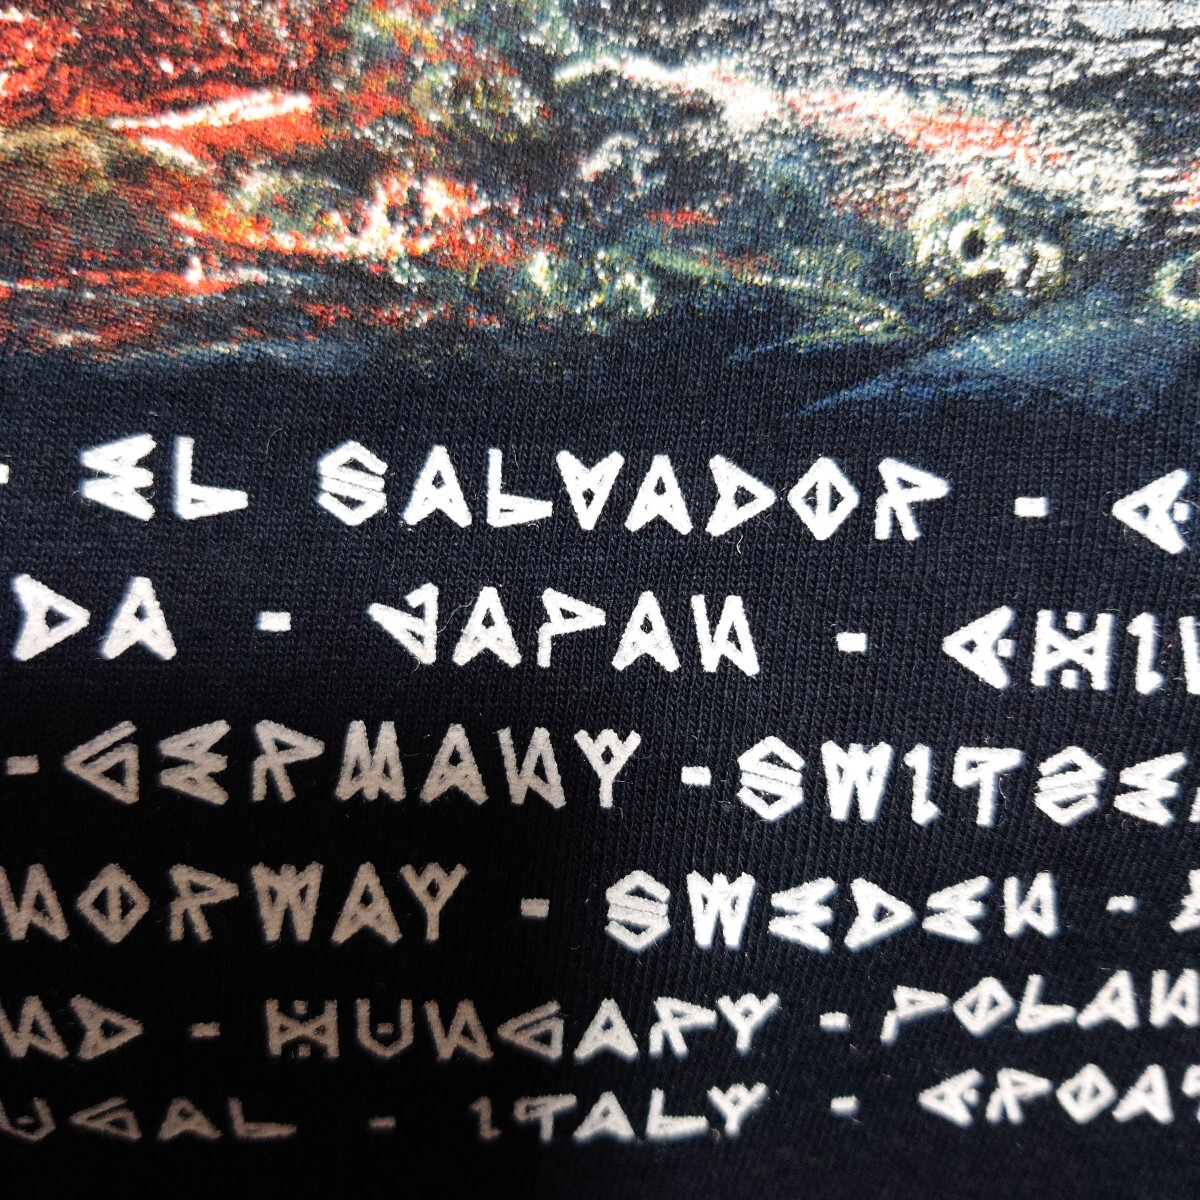 - EL SALVADOR -
DA - JAPAN - CHIN
- GERMANY - SWITZE
NORWAY - SWEDEN -
ND - HUNGARY - POLAN
UGAL - ITALY - CROAT